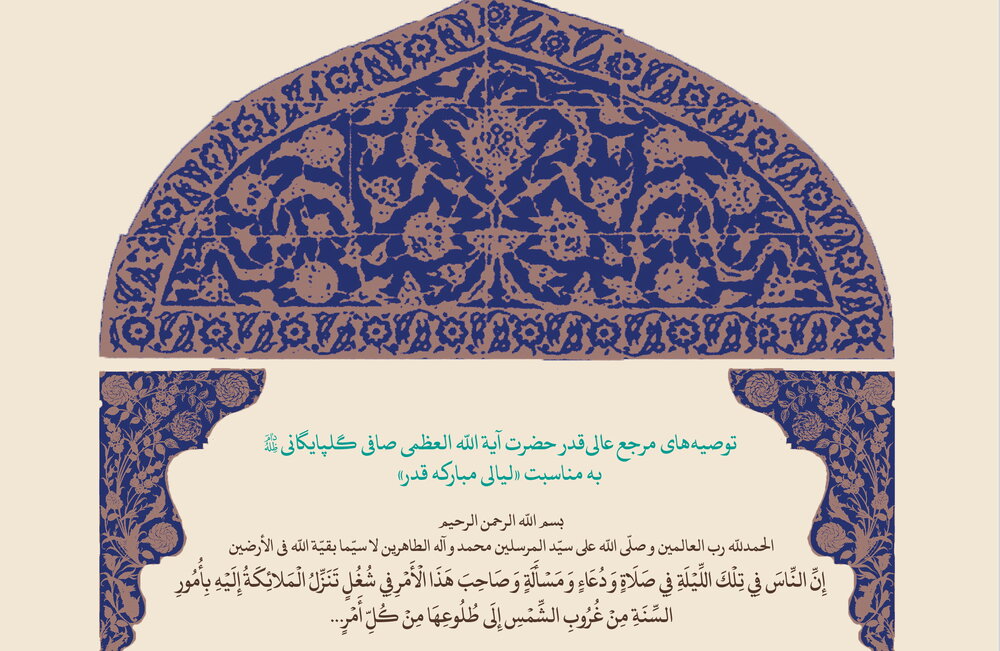 توصیه‌های مرجع عالی‌قدر حضرت آیة الله العظمی صافی گلپایگانی
به مناسبت «لیالی مبارکه قدر»
بسم الله الرحمن الرحیم
الحمدلله رب العالمین و صلّی الله علی سیّد المرسلین محمد وآله الطاهرین لا سیّما بقیّة الله فی الأرضین
إِنَّ النَّاسَ فِي تِلْكَ اللَّيْلَةِ فِي صَلَاةٍ وَ دُعَاءٍ وَ مَسْأَلَةٍ وَ صَاحِبَ هَذَا الْأَمْرِ فِي شُغُلٍ تَنَزَّلُ الْمَلَائِكَةُ إِلَيْهِ بِأُمُورِ
السَّنَةِ مِنْ غُرُوبِ الشَّمْسِ إِلَى طُلُوعِهَا مِنْ كُلِّ أَمْرٍ...